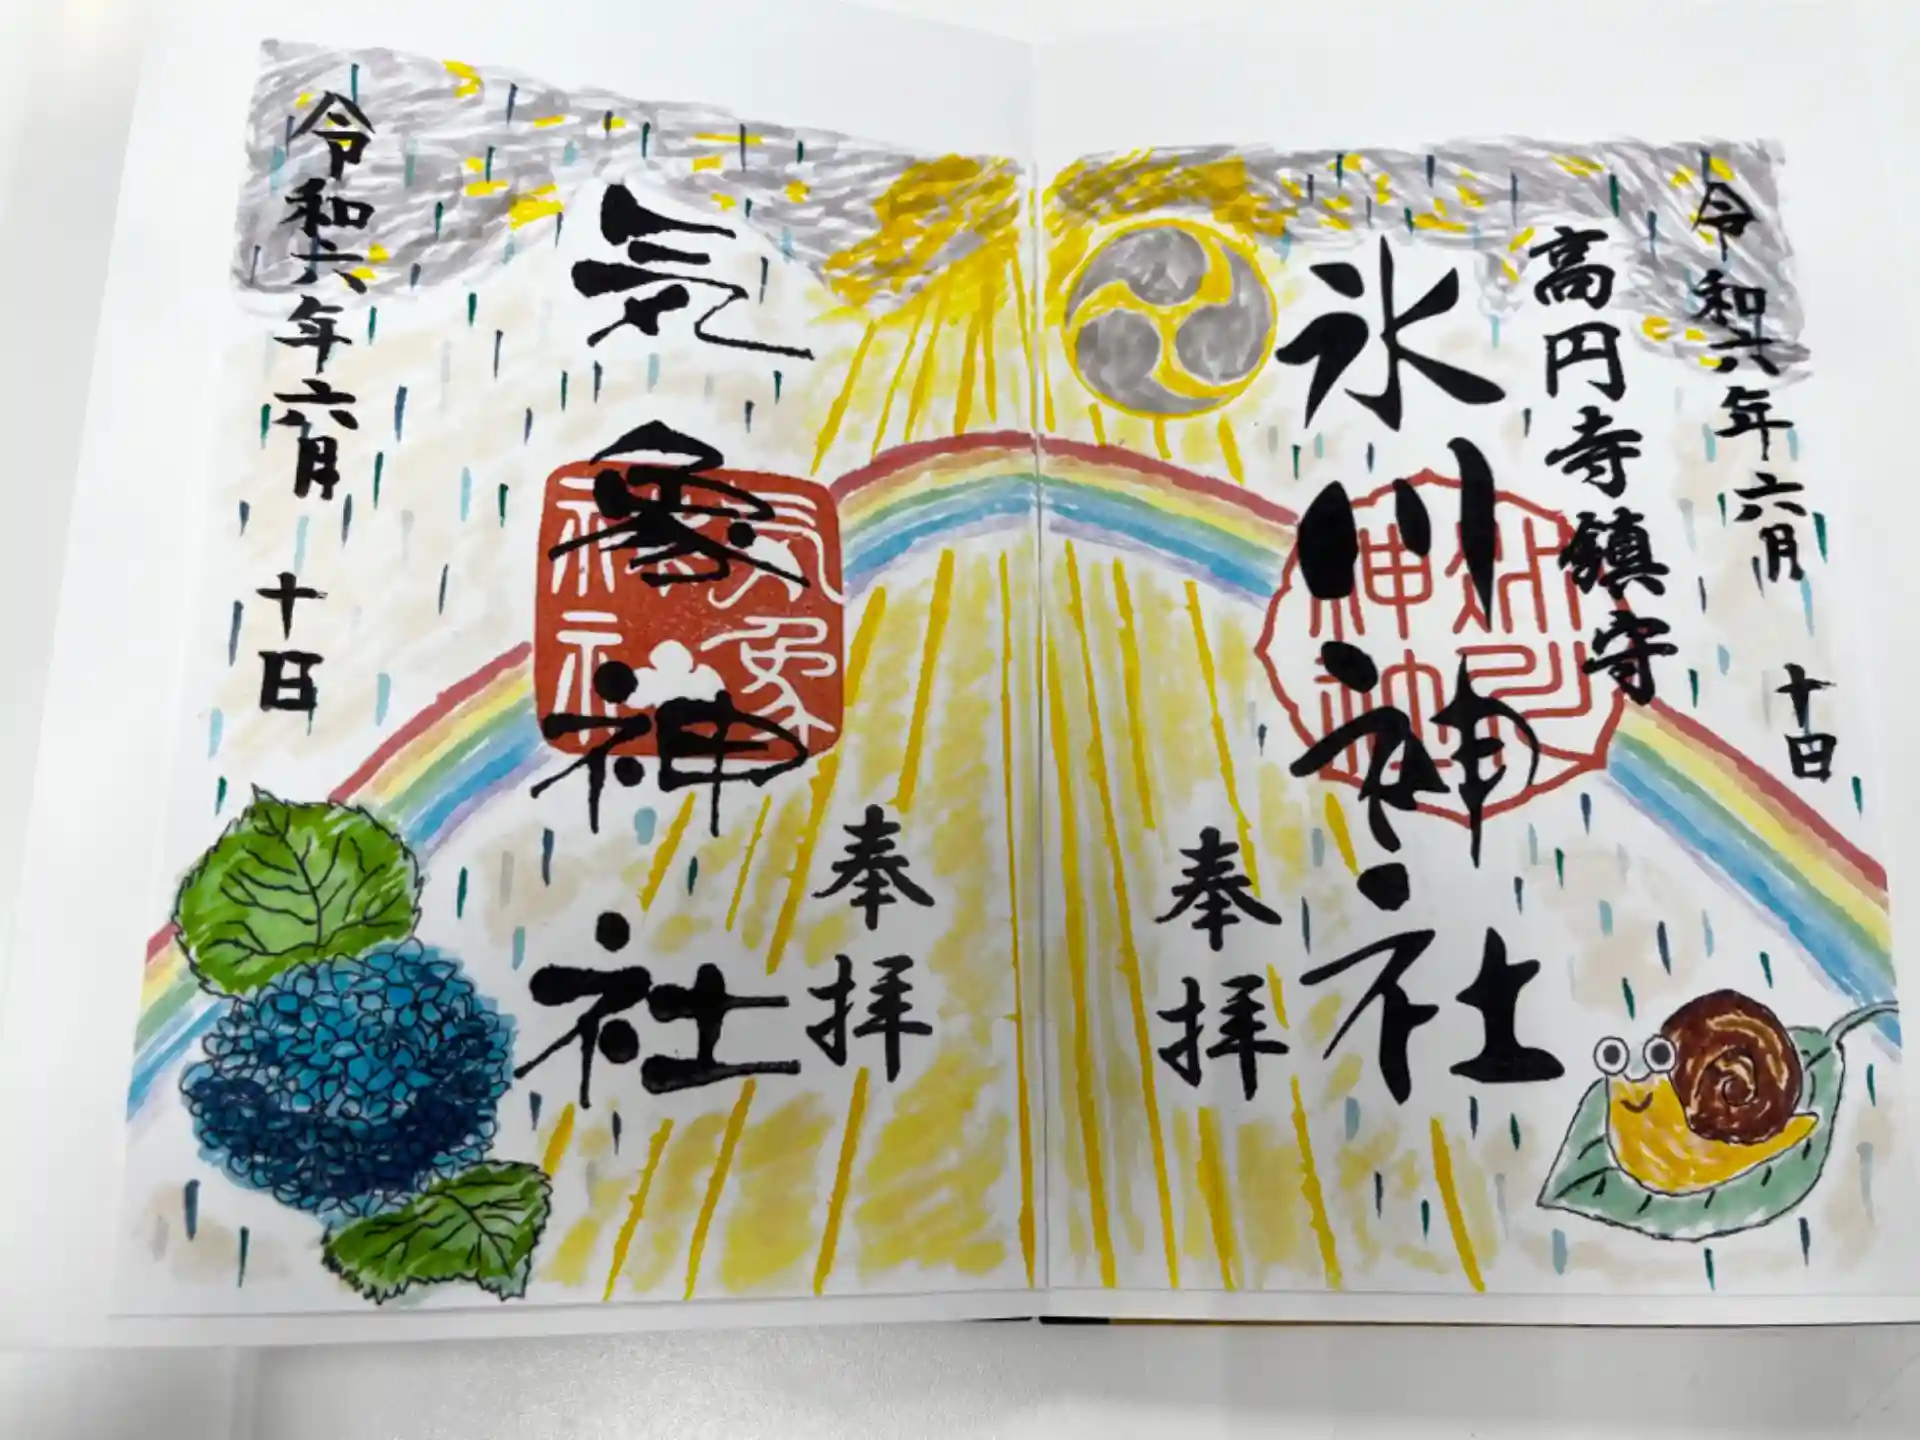 令和六年六月十日
高円寺鎮守
氷川神社
奉拝
奉拝
気象神社
令和六年六月十日
気象
神社